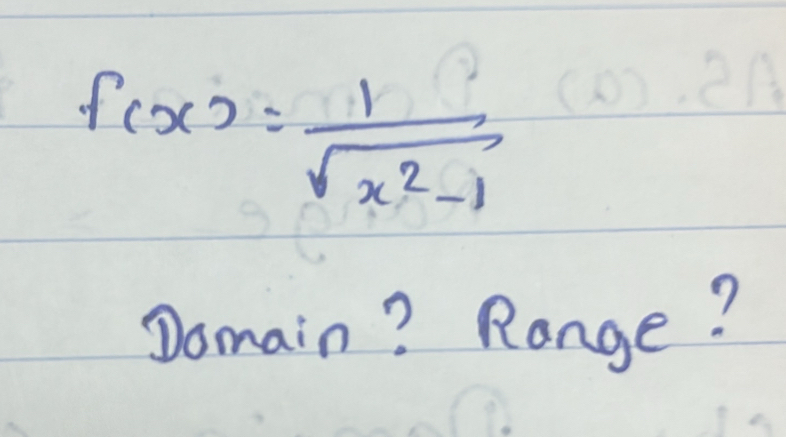 f(x) = 1/√(x² - 1)
Domain? Range?